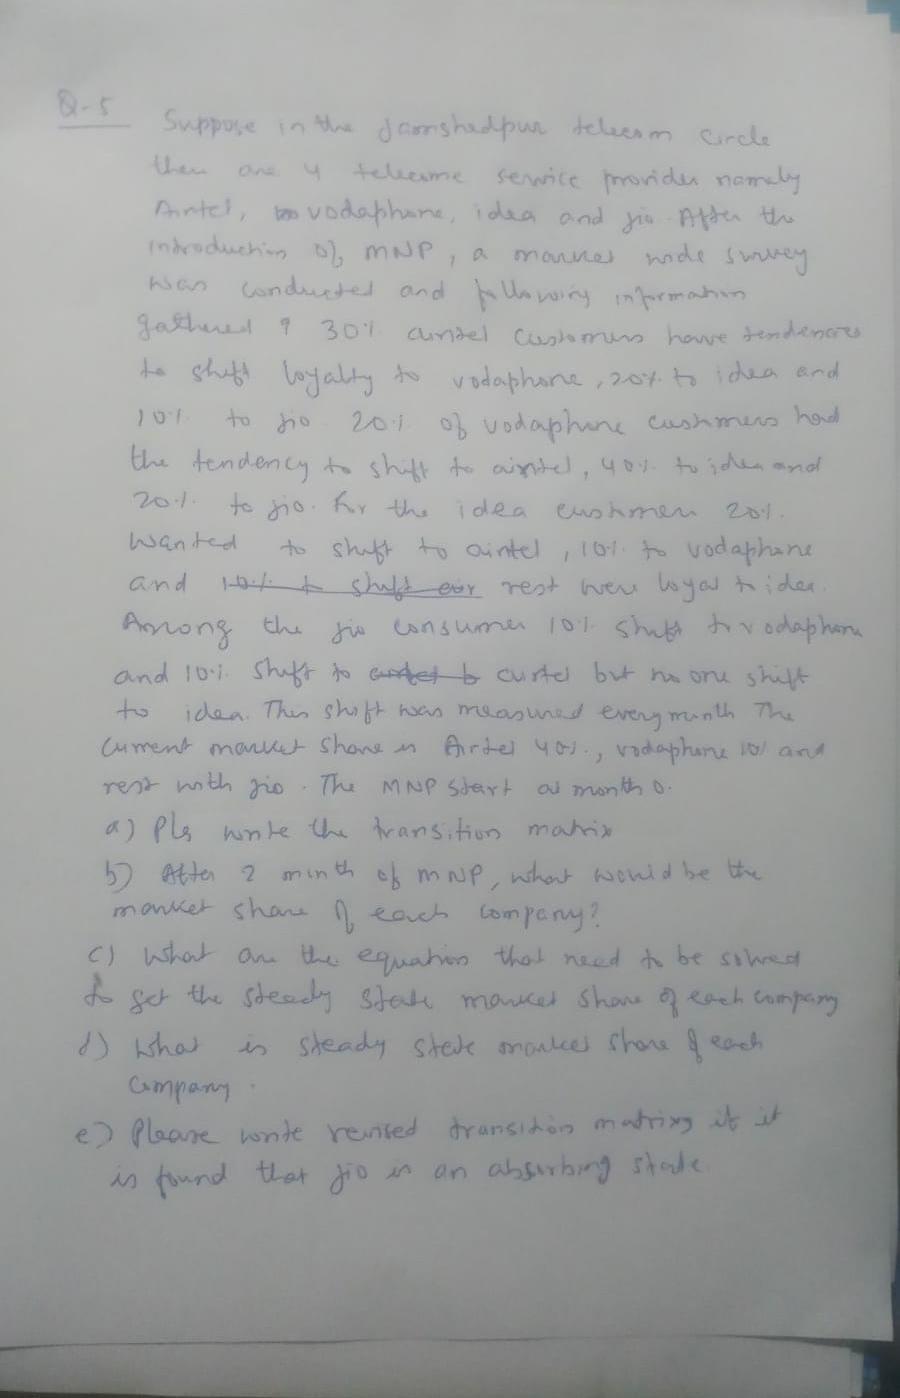 Q-5
Suppose in the Jamshedpur telecom circle
there are 4 telecome service provider namely
Airtel, vodaphone, idea and jio. After the
introduction of MNP, a market wide survey
was conducted and following information
gathered ? 30% airtel customers have tendencies
to shift loyalty to vodaphone, 20% to idea and
10% to jio. 20% of vodaphone customers had
the tendency to shift to airtel, 40% to idea and
20% to jio. For the idea customer 20%
wanted to shift to airtel, 10% to vodaphone
and 10% to shift rest were loyal to idea.
Among the jio consumer 10% shift to vodaphone
and 10% shift to airtel but no one shift
to idea. This shift was measured every month The
current market share is Airtel 40%, vodaphone 10% and
rest with jio. The MNP start at month 0.
a) Pls write the transition matrix
b) After 2 month of MNP, what would be the
market share of each company?
c) What are the equation that need to be solved
to get the steady state market share of each company
d) What is steady state market share of each
company.
e) Please write revised transition matrix if it
is found that jio is an absorbing state.